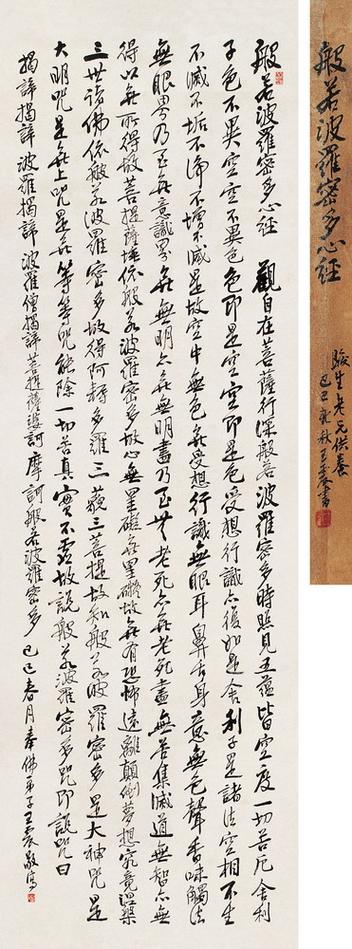 般若波羅密多心經
駿生老兄供養
王震書
般若波羅密多心經 觀自在菩薩行深般若波羅密多時照見五蘊皆空度一切苦厄舍利
子色不異空空不異色色即是空空即是色受想行識亦復如是舍利子是諸法空相不生
不滅不垢不淨不增不減是故空中無色無受想行識無眼耳鼻舌身意無色聲香味觸法
無眼界乃至無意識界無無明亦無無明盡乃至無老死亦無老死盡無苦集滅道無智亦無
得以無所得故菩提薩埵依般若波羅密多故心無罣礙無罣礙故無有恐怖遠離顛倒夢想究竟涅槃
三世諸佛依般若波羅密多故得阿耨多羅三藐三菩提故知般若波羅密多是大神咒是
大明咒是無上咒是無等等咒能除一切苦真實不虛故說般若波羅密多咒即說咒曰
揭諦揭諦波羅揭諦波羅僧揭諦菩提薩婆訶摩訶般若波羅密多 己巳春月奉佛弟子王震敬寫